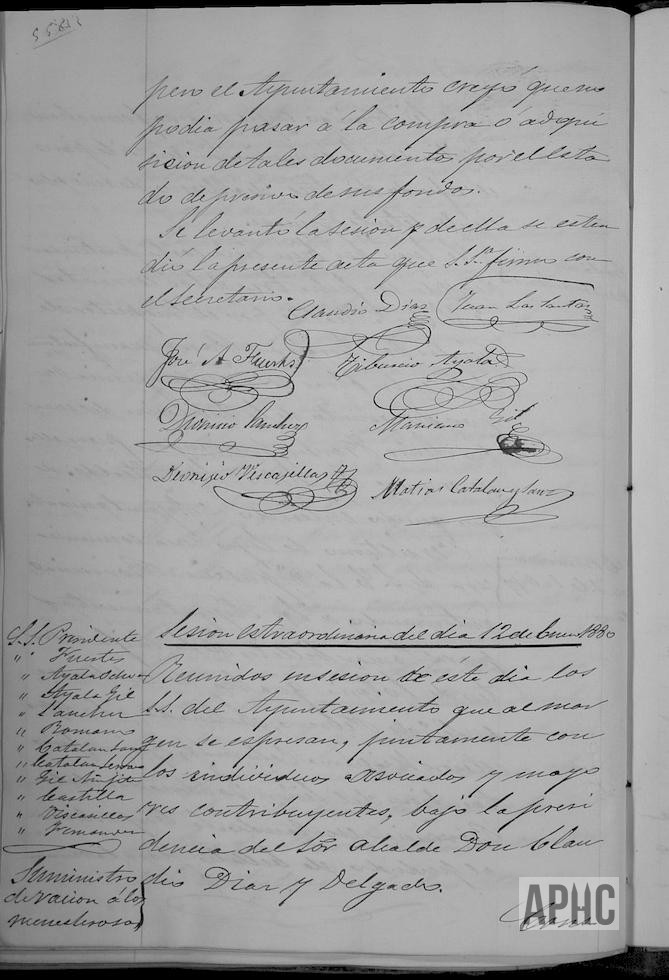 pero el Ayuntamiento creyó que no
podia pasar á la compra ó adqui
sicion de tales documentos por el Esta
do de de sus fondos.
Se levantó la sesion y de ella se esten
dió la presente acta que S. Sª firma con
el Secretario.
Claudio Diaz
Juan Las Santas
José A Fuertes
Tiburcio Ayala
Dionisio Sanchez
Mariano Gil
Dionisio Viscasillas
Matias Catalan y Sanz
Sesion extraordinaria del dia 12 de Enero 1880
S.S. Presidente
" Fuertes
" Ayala
" Ayala Gil
" Sanchez
" Romano
" Catalan Sanz
" Catalan
" Gil
" Castilla
" Viscasillas
" Fernandez
Suministro
de racion á los
menesterosos
Reunidos en sesion de éste dia los
S.S. del Ayuntamiento que al mar
gen se espresan, juntamente con
los individuos asociados y mayo
res contribuyentes, bajo la presi
dencia del Sor Alcalde Don Clau
dio Diaz y Delgado.
APHC